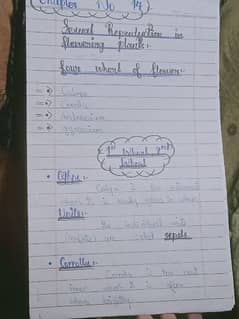 Chapter No 14
Sexual Reproduction in
flowering plant:-
four whorl of flower:-
Calyx
Corolla
Androecium
1st whorl 2nd
whorl
Calyx
Calyx is the outermost
whorl It is
Units:-
the individual unit
are called sepals.
Corolla:-
Corolla is the next
inner whorl It is often